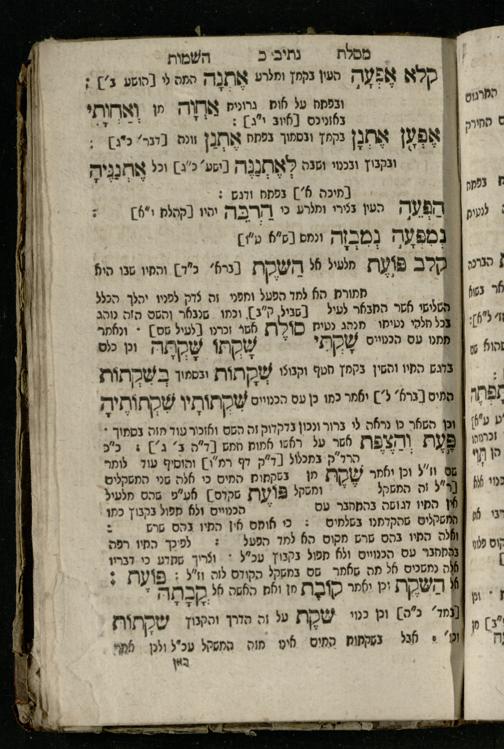 מסלת נתיב כ השמות
קלא אֶפְעָה העין בקמץ ומלרע אֶתְנָה המה לי [הושע ב׳] :
ובפתח על אות גרונית אַחֲוָה מן וְאַחֲוָתִי
באזניכם [איוב י״ג] :
אֶפְעָן אֶתְנָן בקמץ ובסמוך בפתח אֶתְנַן זונה [דבר׳ כ״ג] :
ובקבוץ ובכנוי ושבה לְאֶתְנַנָּה [ישע׳ כ״ג] וכל אֶתְנַנֶּיהָ
[מיכה א׳] בפתח ודגש :
הַפְעֵה העין בצירי ומלרע כי הַרְבֵּה יהיו [קהלת י״א] :
נִמְפְּעָה נְמִבְזָה ונמס [ש״א ט״ו]
קלב פּוֹעֶת מלעיל אל הַשֹּׁקֶת [ברא׳ כ״ד] והתיו שבו היא
תמורת הא למד הפעל ומפני זה לדק לפניו יהלך הכלל
השלישי אשר התבאר לעיל [שביל, ק״ב], וכמו שנבאר והשם הזה נוהג
בכל חלקי נעימו מנהג נעים סוֹלֶת אשר זכרנו [לעיל שם] ונאמר
ממנו עם הכנויים שָׁקְתִּי שָׁקְתּוֹ שָׁקְתָּהּ וכן כלם
בדגש התיו והשין בקמץ חטף וקבוצו שְׁקָתוֹת ובסמוך בְּשִׁקְתוֹת
המים [ברא׳ ל׳] יאמר כמו כן עם הכנויים שִׁקְתוֹתָיו שִׁקְתוֹתֶיהָ
וכן השאר כו נראה לי ברור ונכון בדקדוק זה השם ואזכור עוד מזה בסמוך ׃
פֶּעֶת וְהַצֶּפֶת אשר על ראשו אמות חמש [ד״ה ב׳ ג׳] : כ״כ
הרד״ק במכלול [ד״ק דף רמ״ו] והוסיף עוד לומר
שם וז״ל וכן יאמר שֶׁקֶת מן בשקתות המים כי אלה שני המשקלים
[ר״ל זה המשקל ומשקל פּוֹעֶת שקדם] אע״פ שהם מלעיל
אין התיו דגושה בהתחבר עם הכנויים ולא תפול בקבוץ כמו
המשקלים שהקדמנו בשלמים : כי אותם אין התיו בהם שרש :
ואלה התיו בהם שרש מקום הא למד הפעל : לפיכך התיו רפה
בהתחבר עם הכנויים ולא תפול בקבוץ עכ״ל . וצריך שתדע כי דבריו
אלה נמשכים אל מה שאמר שם במשקל הקודם לזה וז״ל : פּוֹעֶת :
אל הַשֹּׁקֶת וכן יאמר קוֹבֶת מן ואת האשה אל קֳבָתָהּ
[במד׳ כ״ה] וכן כנוי שֹׁקֶת על זה הדרך והקבוץ שְׁקָתוֹת
וכו׳ . אבל בשקתות המים אינו מזה המשקל עכ״ל ולכן אחרי
כאן